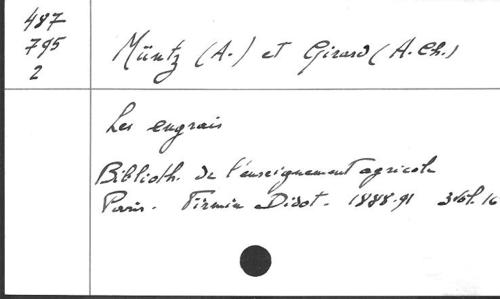 487
795
2
Müntz (A.) et Girard (A. Ch.)
Les engrais
Biblioth. de l'enseignement agricole
Paris. Firmin Didot. 1888-91 3 vol. 16